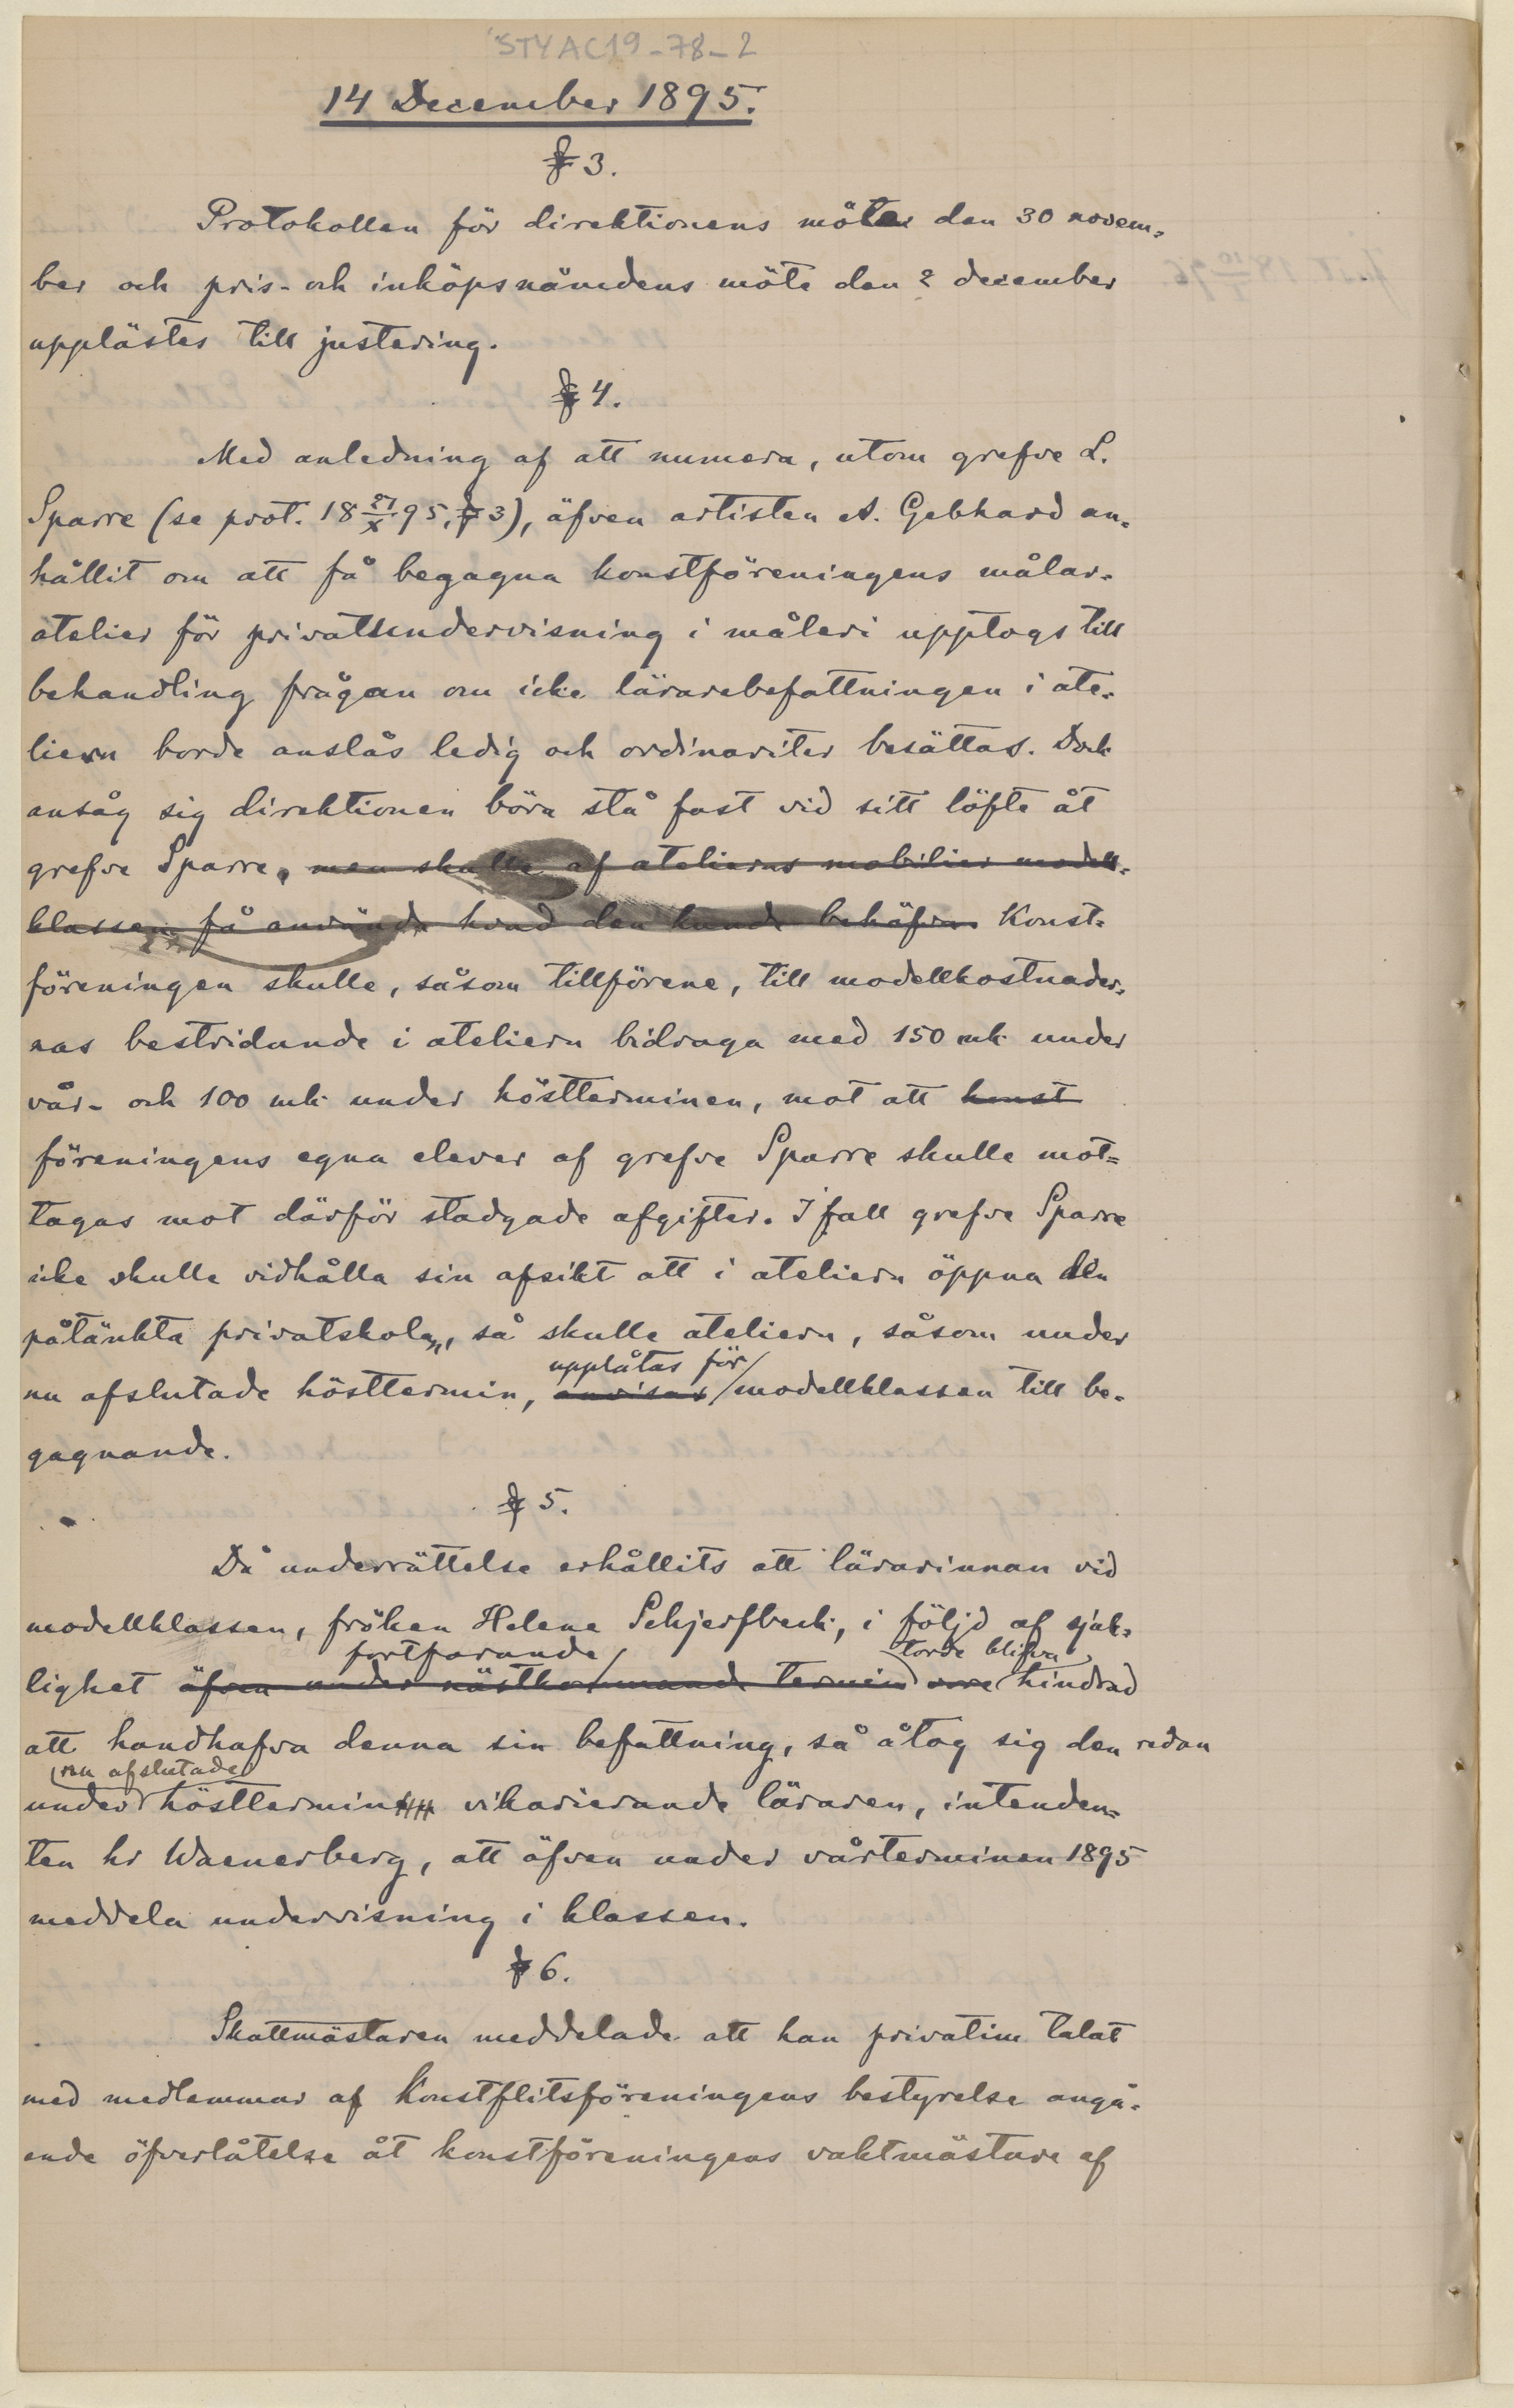 STYAC19-78-2
14 December 1895.
§ 3.
Protokollen för direktionens möte den 30 novem=
ber och pris- och inköpsnämdens möte den 2 december
upplästes till justering.
§ 4.
Med anledning af att numera, utom grefve L.
Sparre (se prot. 18 27/X 95, § 3), äfven artisten A. Gebhard an=
hållit om att få begagna konstföreningens målar=
atelier för privatundervisning i måleri upptogs till
behandling frågan om icke lärarebefattningen i ate=
liern borde anslås ledig och ordinariter besättas. Dock
ansåg sig direktionen böra stå fast vid sitt löfte åt
grefve Sparre, men skulle af atelierns mobilier modell=
klassen få använda hvad den kunde behöfva Konst=
föreningen skulle, såsom tillförene, till modellkostnader=
nas bestridande i ateliern bidraga med 150 mk under
vår- och 100 mk under höstterminen, mot att konst
föreningens egna elever af grefve Sparre skulle mot=
tagas mot därför stadgade afgifter. I fall grefve Sparre
icke skulle vidhålla sin afsikt att i ateliern öppna den
påtänkta privatskolan, så skulle ateliern, såsom under
upplåtas för
nu afslutade hösttermin, anvisas modellklassen till be=
gagnande.
§ 5.
Då underrättelse erhållits att lärarinnan vid
modellklassen, fröken Helene Schjerfbeck, i följd af sjuk=
fortfarande torde blifva
lighet äfven under nästkommande termin vore hindrad
att handhafva denna sin befattning, så åtog sig den redan
nu afslutade
under hösttermin vikarierande läraren, intenden=
ten hr Waenerberg, att äfven under vårterminen 1895
meddela undervisning i klassen.
§ 6.
Skattmästaren meddelade att han privatim talat
med medlemmar af Konstflitsföreningens bestyrelse angå=
ende öfverlåtelse åt konstföreningens vaktmästare af